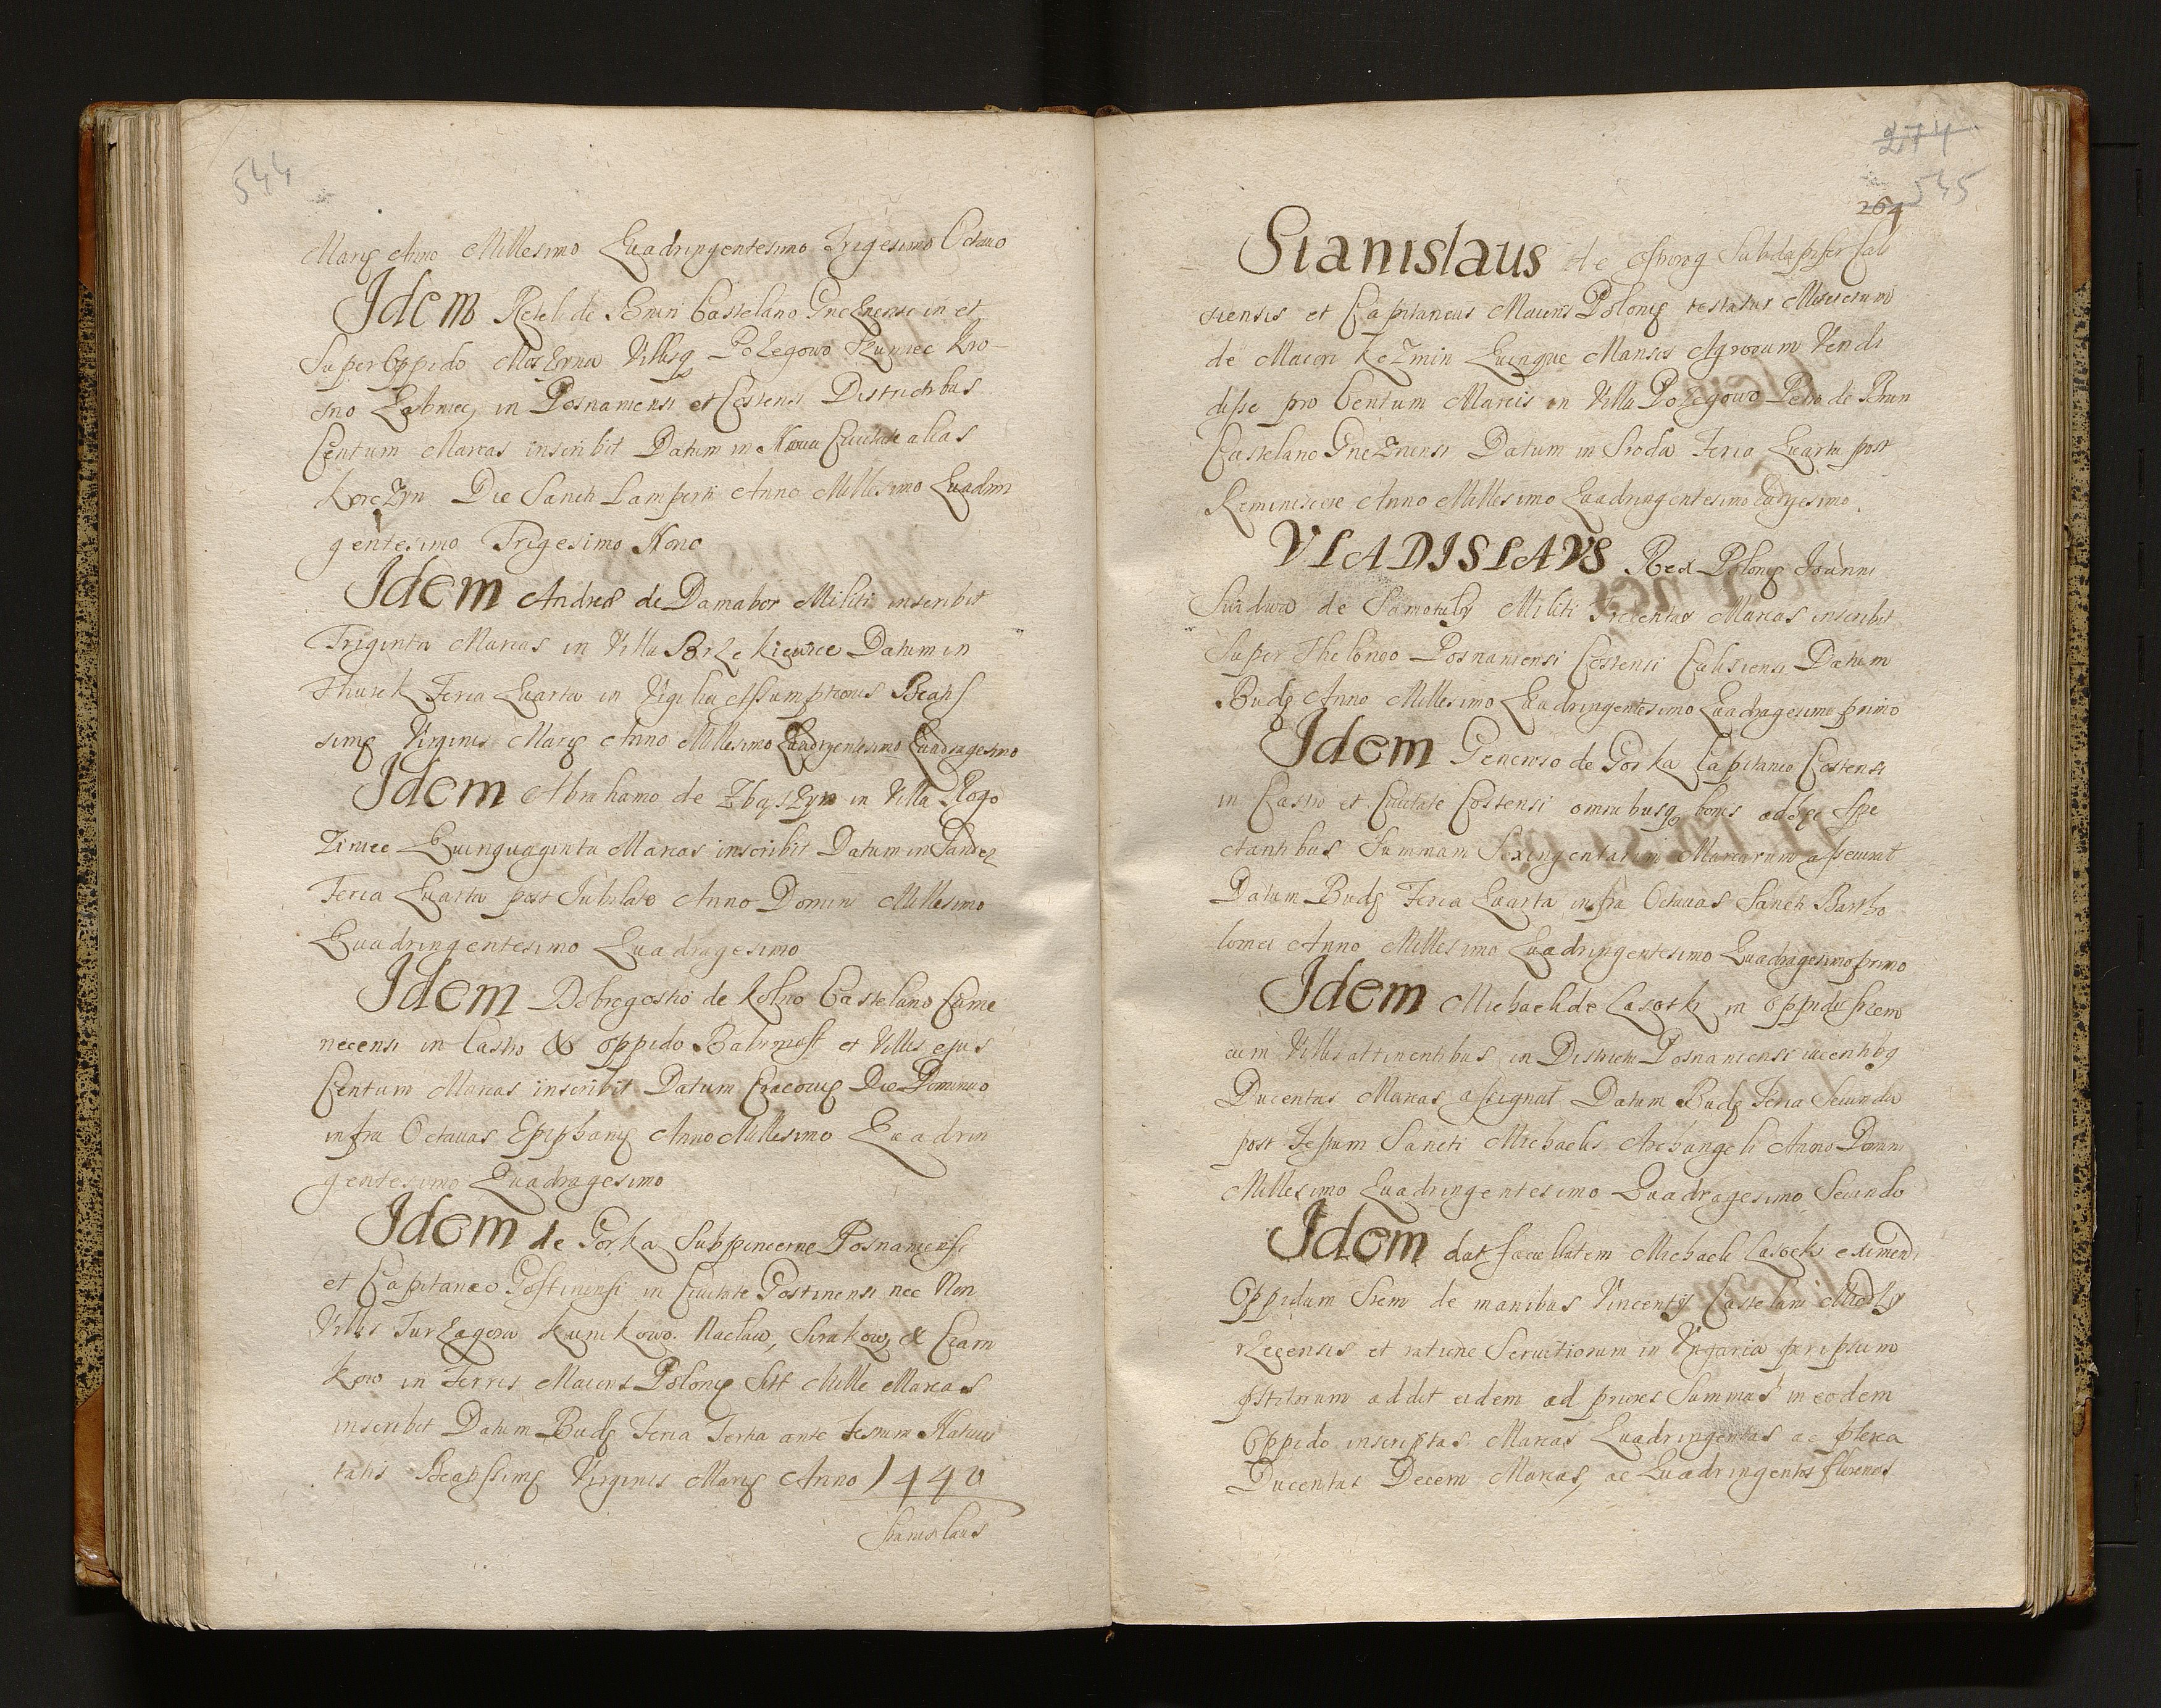 544
Mariæ Anno Millesimo Quadringentesimo Trigesimo Octavo
Idem Petro de Bnin Castelano Gneznensi in et
Super Oppido Moszyna Villisq Pozegowo Krumiec Kro-
sno Zabniec, in Posnaniensi et Costensi Districtibus
Centum Marcas inscribit Datum in Noua Ciuitate alias
Korczyn Die Sancti Lamperti Anno Millesimo Quadrin
gentesimo Trigesimo Nono
Idem Andreæ de Damabor Militi inscribit
Triginta Marcas in Villa Brzekiewice Datum in
Thurek Feria Quarta in Vigilia Assumptionis Beatis
simæ Virginis Mariæ Anno Millesimo Quadrgentesimo Quadragesimo
Idem Abrahamo de Zbąszyn in Villa Rogo
ziniec Quinquaginta Marcas inscribit Datum in Sandez
Feria Quarta post Jubilate Anno Domini Millesimo
Quadringentesimo Quadragesimo
Idem Dobrogostio de Kolno Castelano Came
necensi in Castro & Oppido Babimost et Villis ejus
Centum Marcas inscribit Datum Cracouiæ Die Dominico
infra Octauas Epiphaniæ Anno Millesimo Quadrin
gentesimo Quadragesimo
Idem de Gorka Subpincernæ Posnaniensi
et Capitaneo Gostinensi in Ciuitate Gostinensi nec Non
Villis Turzagora Kunikowo. Naclaw, Sirakow, & Czarn
kow in Terris Maioris Poloniæ Mille Marcas
inscribit Datum Budæ Feria Tertia ante Festum Natiui
tatis Beatissimæ Virginis Mariæ Anno 1440
Stanislaus
274
545
264
Stanislaus de Ostrorog Subdapifer Cali
siensis et Capitaneus Maioris Poloniæ testatur
de Maiori Kozmin Quinque Mansos Agrorum Vendi
disse pro Centum Marcis in Villa Pozegowo Petro de Bnin
Castelano Gneznensi Datum in Sroda Feria Quarta post
Reminiscere Anno Millesimo Quadringentesimo Quadrgesimo.
VLADISLAVS Rex Poloniæ Joanni
Suidwa de Samotuly Militi Trecentas Marcas inscribit
Super Theloneo Posnaniensi Costensi Calisiensi Datum
Budæ Anno Millesimo Quadringentesimo Quadragesimo primo
Idem Generoso de Gorka Capitaneo Costensi
in Castro et Ciuitate Costensi omnibusq bonis ad Spe
ctantibus Summam Sexingentarum Marcarum assecurat
Datum Budæ Feria Quarta infra Octauas Sancti Bartho
lomei Anno Millesimo Quadringentesimo Quadragesimo primo
Idem Michaeli de Lasotki in Oppido Srem
cum Villis attinentibus in Districtu Posnaniensi iacentibq
Ducentas Marcas assignat Datum Budæ Feria Secunda
post Festum Sancti Michaelis Archangeli Anno Domini
Millesimo Quadringentesimo Quadragesimo Secundo
Idem dat facultatem Michaeli Lasocki eximendi
Oppidum Srem de manibus Vincentij Castelani Miedzy
rzecensis et ratione Seruitiorum in Vngaria per ipsum
pstitorum addit eidem ad priores Summas in eodem
Oppido inscriptas Marcas Quadringentas ac pterea
Ducentas Decem Marcas, ac Quadringentos florenos